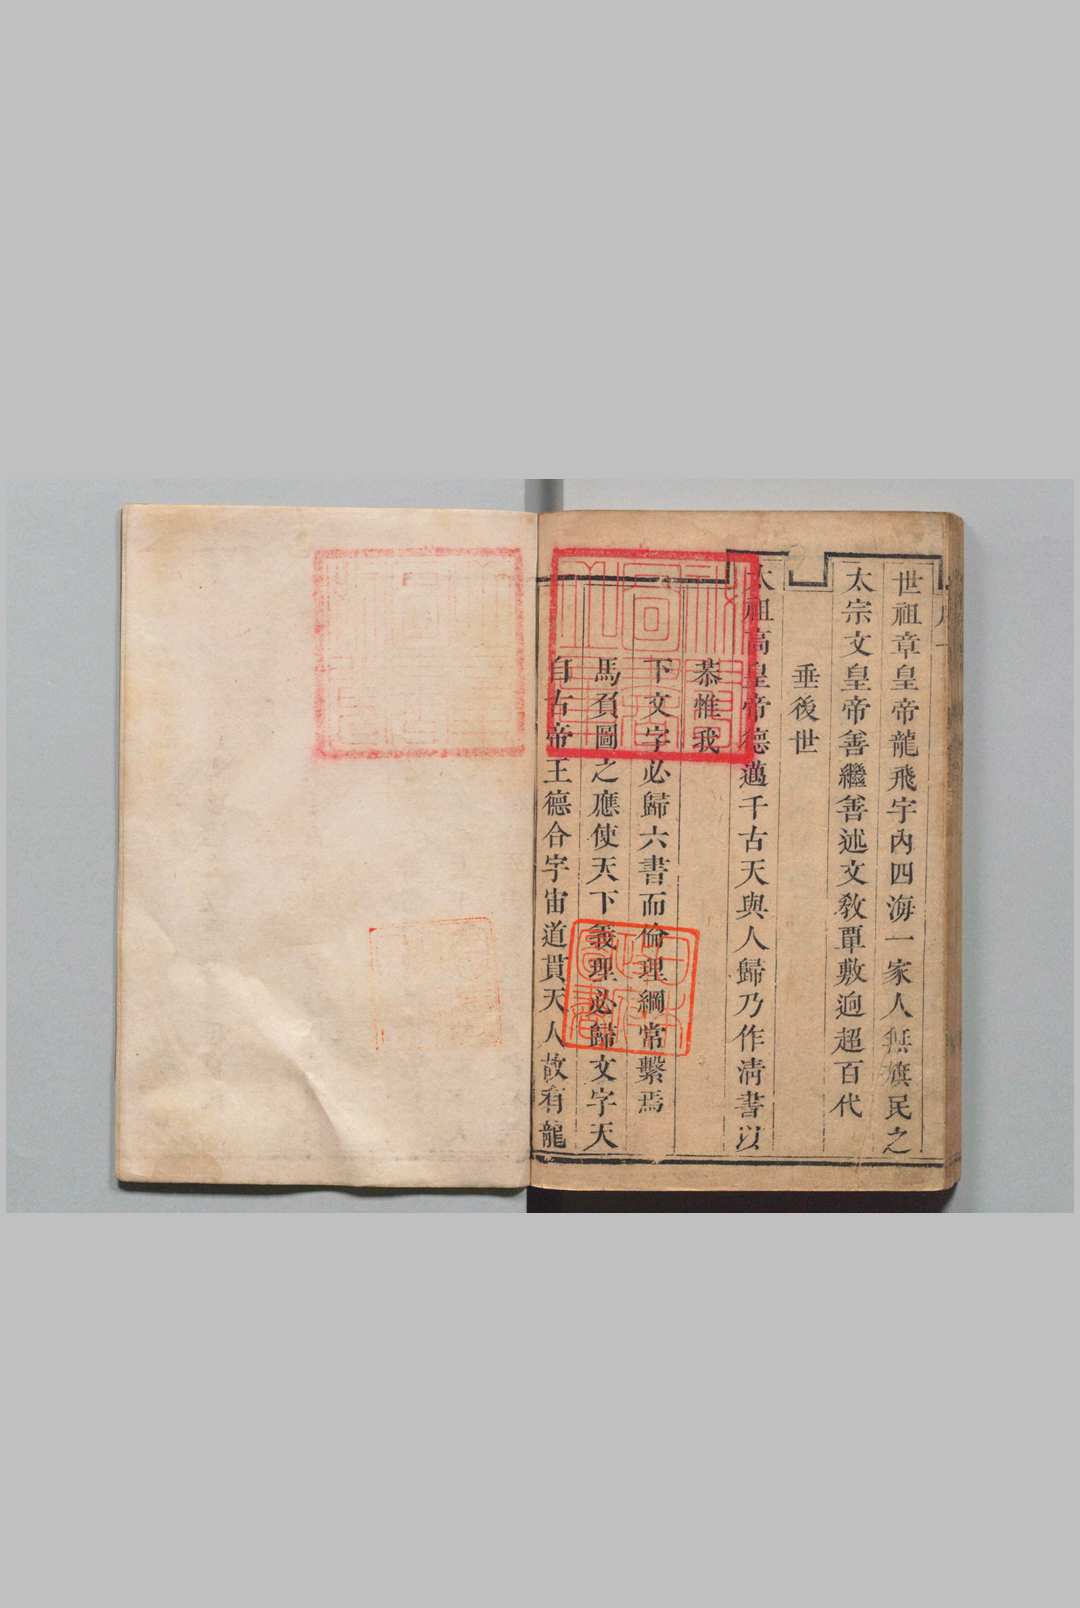 自古帝王德合宇宙道貫天人故有龍
馬負圖之應使天下義理必歸文字天
下文字必歸六書而倫理綱常繫焉
恭惟我
太祖高皇帝德邁千古天與人歸乃作清書以
垂後世
太宗文皇帝善繼善述文敎覃敷逈超百代
世祖章皇帝龍飛宇內四海一家人無旗民之